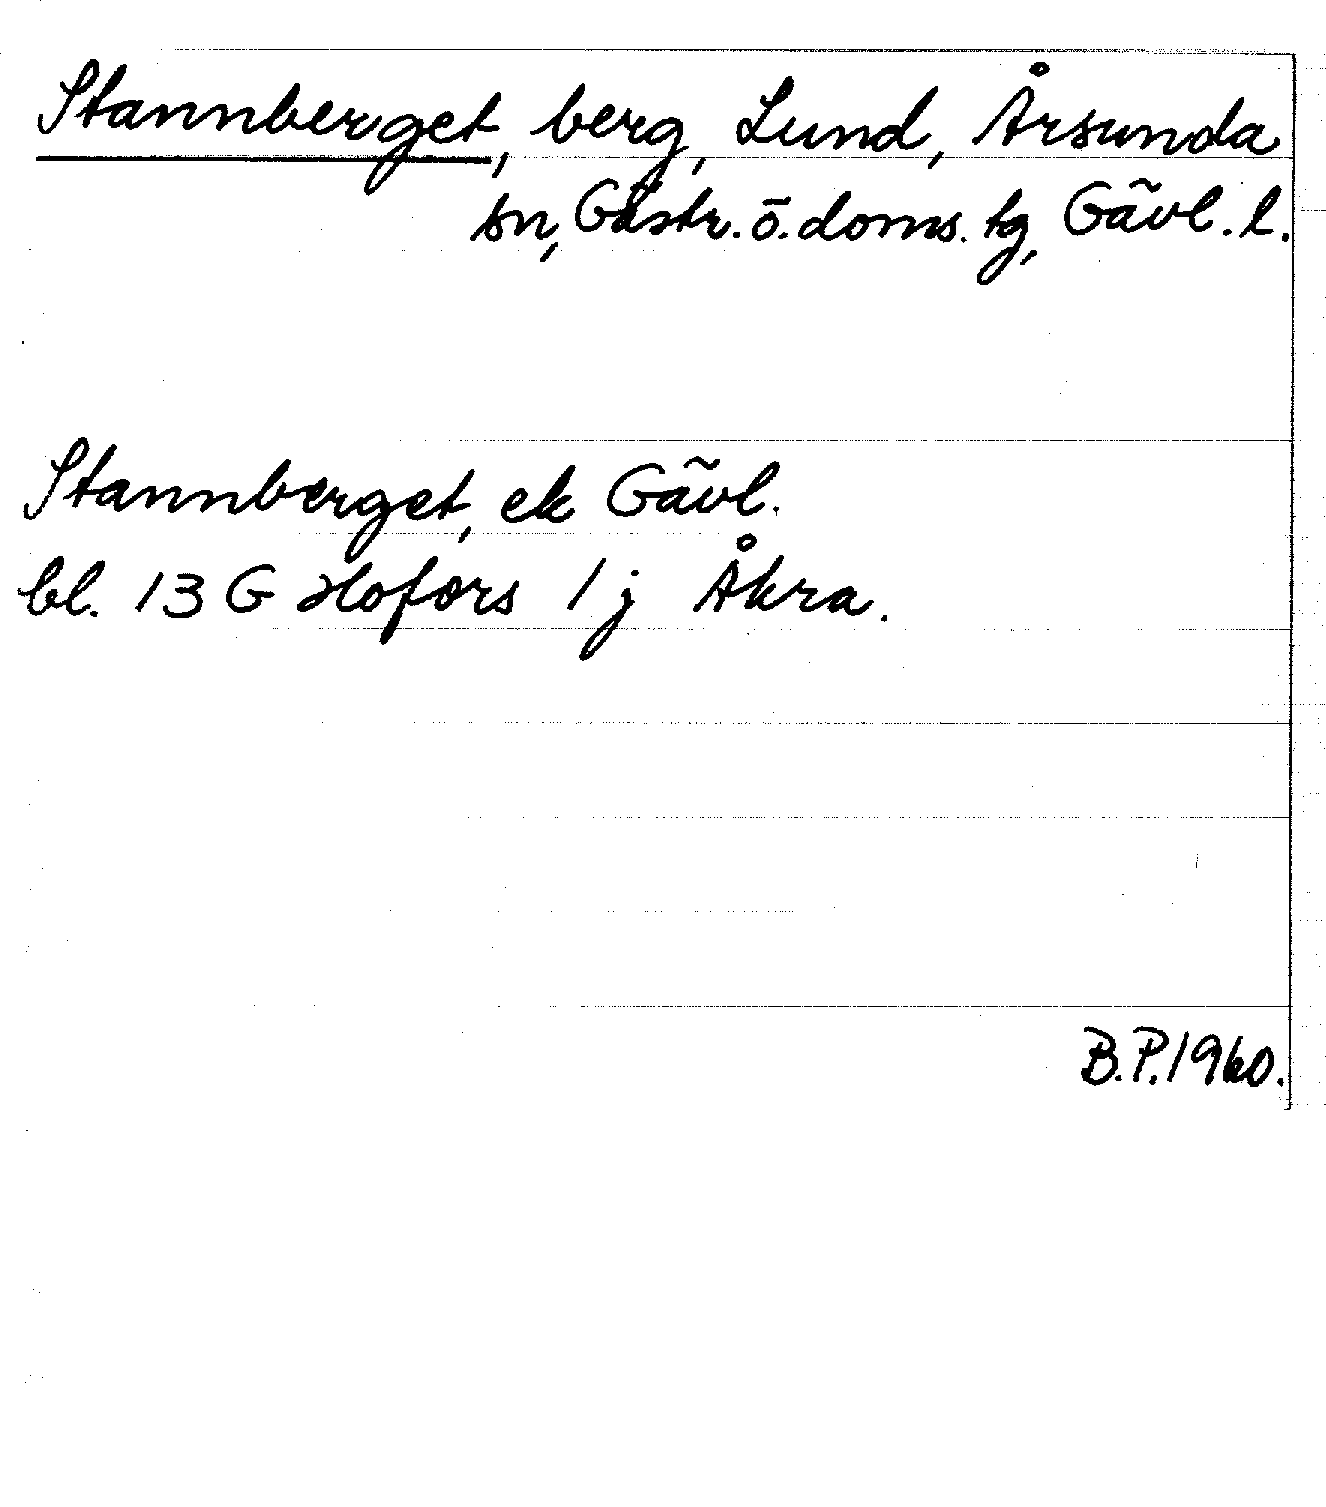 Stannberget, berg, Lund, Årsunda
sn, Gästr. ö. doms. tg, Gävl. l.
Stannberget, ek Gävl.
bl. 13 G Hofors 1 j Åkra.
B.P. 1960.